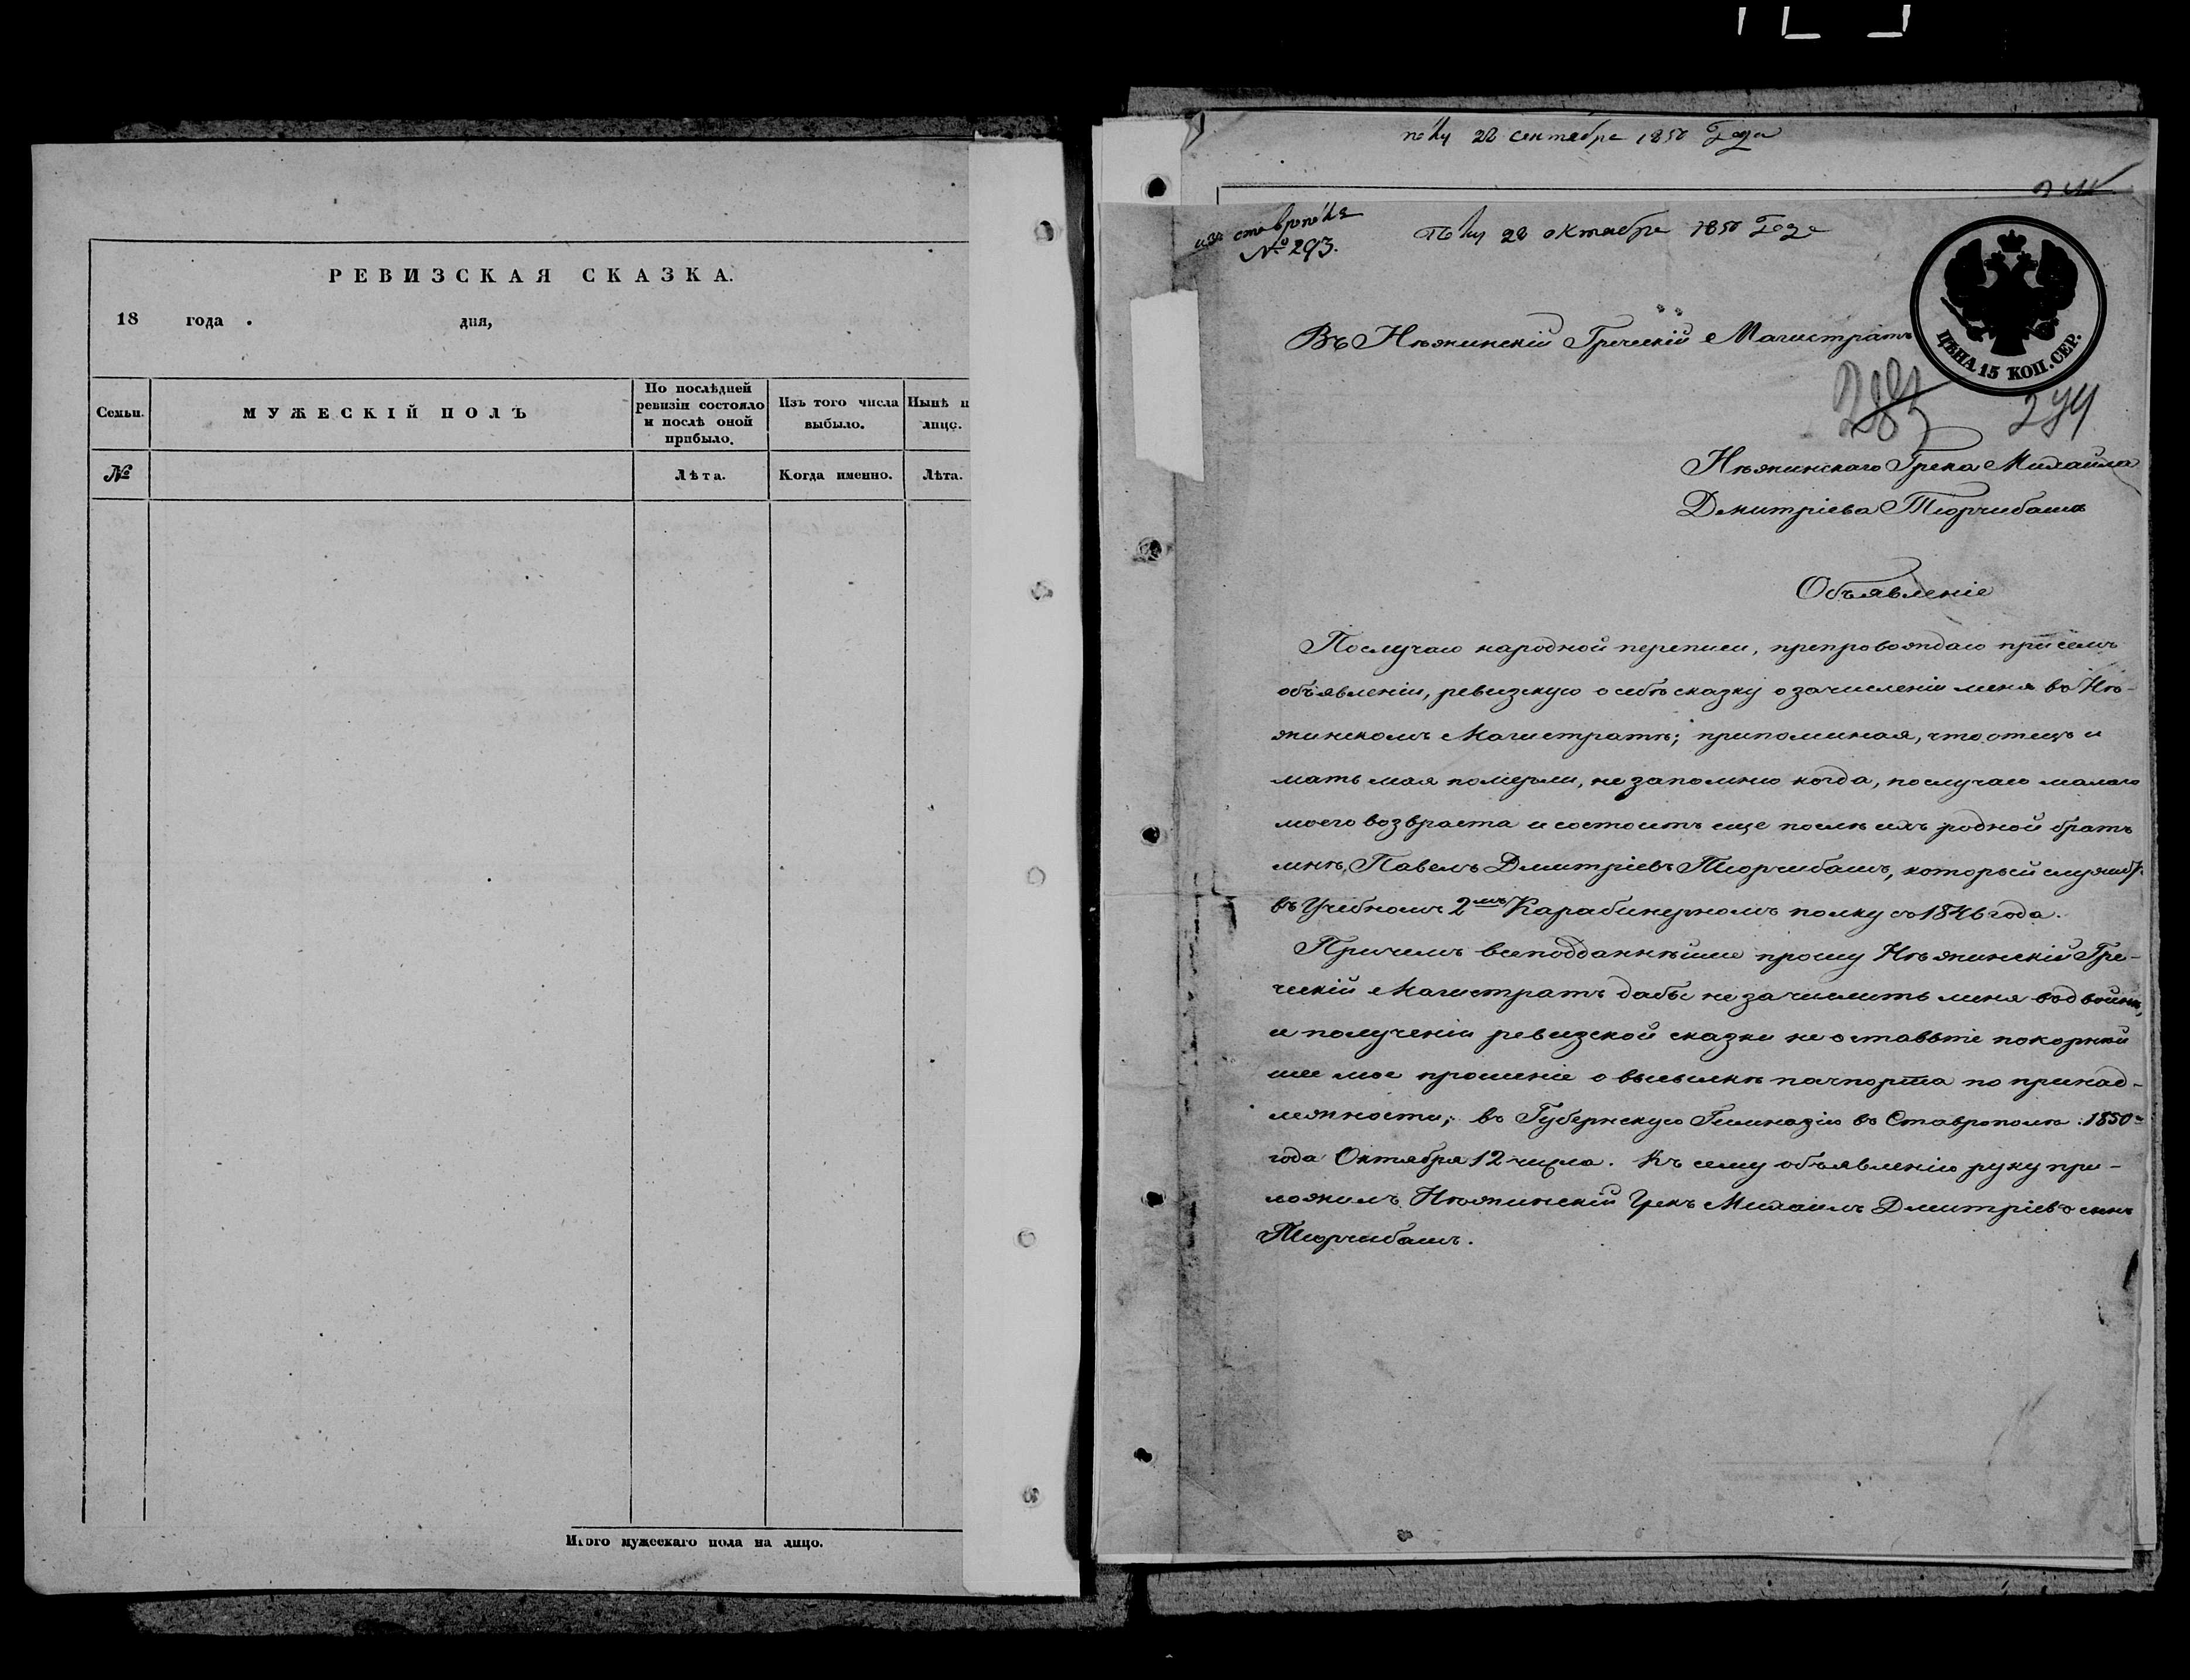 РЕВИЗСКАЯ СКАЗКА.
18 года . дня,
Семьи.
МУЖЕСКІЙ ПОЛЪ
По послѣдней
ревизіи состояло
и послѣ оной
прибыло.
Изъ того числа
выбыло.
Нынѣ н
лицо.
№
Лѣта.
Когда именно.
Лѣта.
Итого мужескаго пола на лицо.
22 сентября 1850 Года
изъ ставрополя
№ 293.
28 октября 1850 Года
ЦѢНА 15 КОП. СЕР.
Въ Нѣжинскій Греческій Магистратъ
294
Нѣжинскаго Грека Михаила
Дмитріева Тюрчибаша
Объявленіе
Послучаю народной переписи, препровождаю при семъ
объявленіи, ревизкую о себѣ сказку о зачисленіи меня въ Нѣ-
жинскомъ Магистратѣ; припоминая, что отецъ и
мать мая померли, не запомню когда, послучаю малаго
моего возвраста и состоитъ еще послѣ ихъ родной братъ
мнѣ, Павелъ Дмитріевъ Тюрчибашъ, который служитъ
въ Учебномъ 2мъ Карабинерномъ полку съ 1846 года.
Причемъ всеподданнѣйше прошу Нѣжинскій Гре-
ческій Магистратъ дабы не зачислить меня вдвойнѣ,
и полученіи ревизской сказки не оставьте покорнѣй
шее мое прошеніе о высылкѣ пачпорта по принад-
лежности; въ Губернскую Гимназію въ Ставрополѣ. 1850
года Октября 12 числа. Къ сему объявленію руку при-
ложилъ Нѣжинскій Грекъ Михаилъ Дмитріевъ сынъ
Тюрчибашъ.